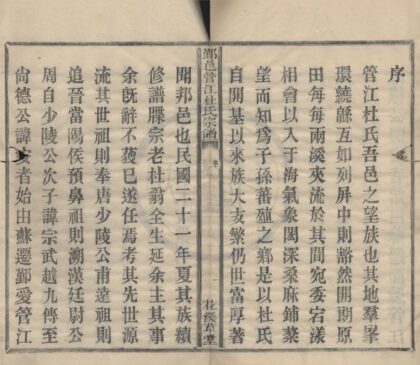 序
管江杜氏吾邑之望族也其地羣峯
環繞緜亙如列屏中則豁然開朗原
田每每兩溪夾流於其間宛委宕漾
相會以入于海氣象閎深桑麻鋪棻
望而知為子孫蕃殖之鄉是以杜氏
自開基以來族大支繁仍世富厚著
鄞邑管江杜氏宗譜
序
溪草堂
聞邦邑也民國二十一年夏其族續
修譜牒宗老杜翁全生延余主其事
余旣辭不獲已遂任焉考其先世源
流其世祖則奉唐少陵公甫遠祖則
追晉當陽侯預鼻祖則溯漢廷尉公
周自少陵公次子諱宗武越九傳至
尙德公諱者始由蘇遷鄞愛管江